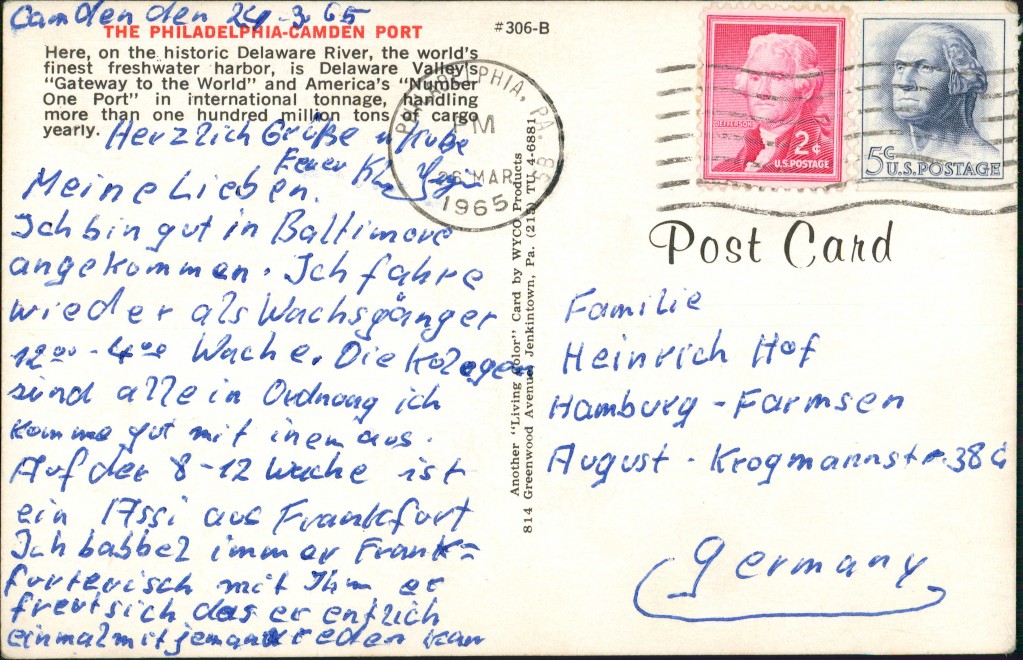 Camden den 24.3.65
THE PHILADELPHIA-CAMDEN PORT
Here, on the historic Delaware River, the world's
finest freshwater harbor, is Delaware Valley's
"Gateway to the World" and America's "Number
One Port" in international tonnage, handling
more than one hundred million tons of cargo
yearly.
Herzlich Grüße u
Euer
Meine Lieben.
Ich bin gut in Baltimore
angekommen. Ich fahre
wieder als Wachsgänger
12⁰⁰ - 4⁰⁰ Wache. Die Kolegen
sind alle in Ordnung ich
komme gut mit inen aus.
Auf der 8-12 Wache ist
ein Assi aus Frankfurt
Ich babbel immer Frank=
forterisch mit Ihm er
freut sich das er entlich
einmal mit jemand reden kan
#306-B
PHILADELPHIA, PA.
PM
26 MAR
1965
Another "Living Color" Card by WYCO Products
814 Greenwood Avenue, Jenkintown, Pa. (215) TU 4-6881
JEFFERSON
2¢
U.S. POSTAGE
5¢
U.S. POSTAGE
Post Card
Familie
Heinrich Hof
Hamburg - Farmsen
August - Krogmannstr. 38
Germany